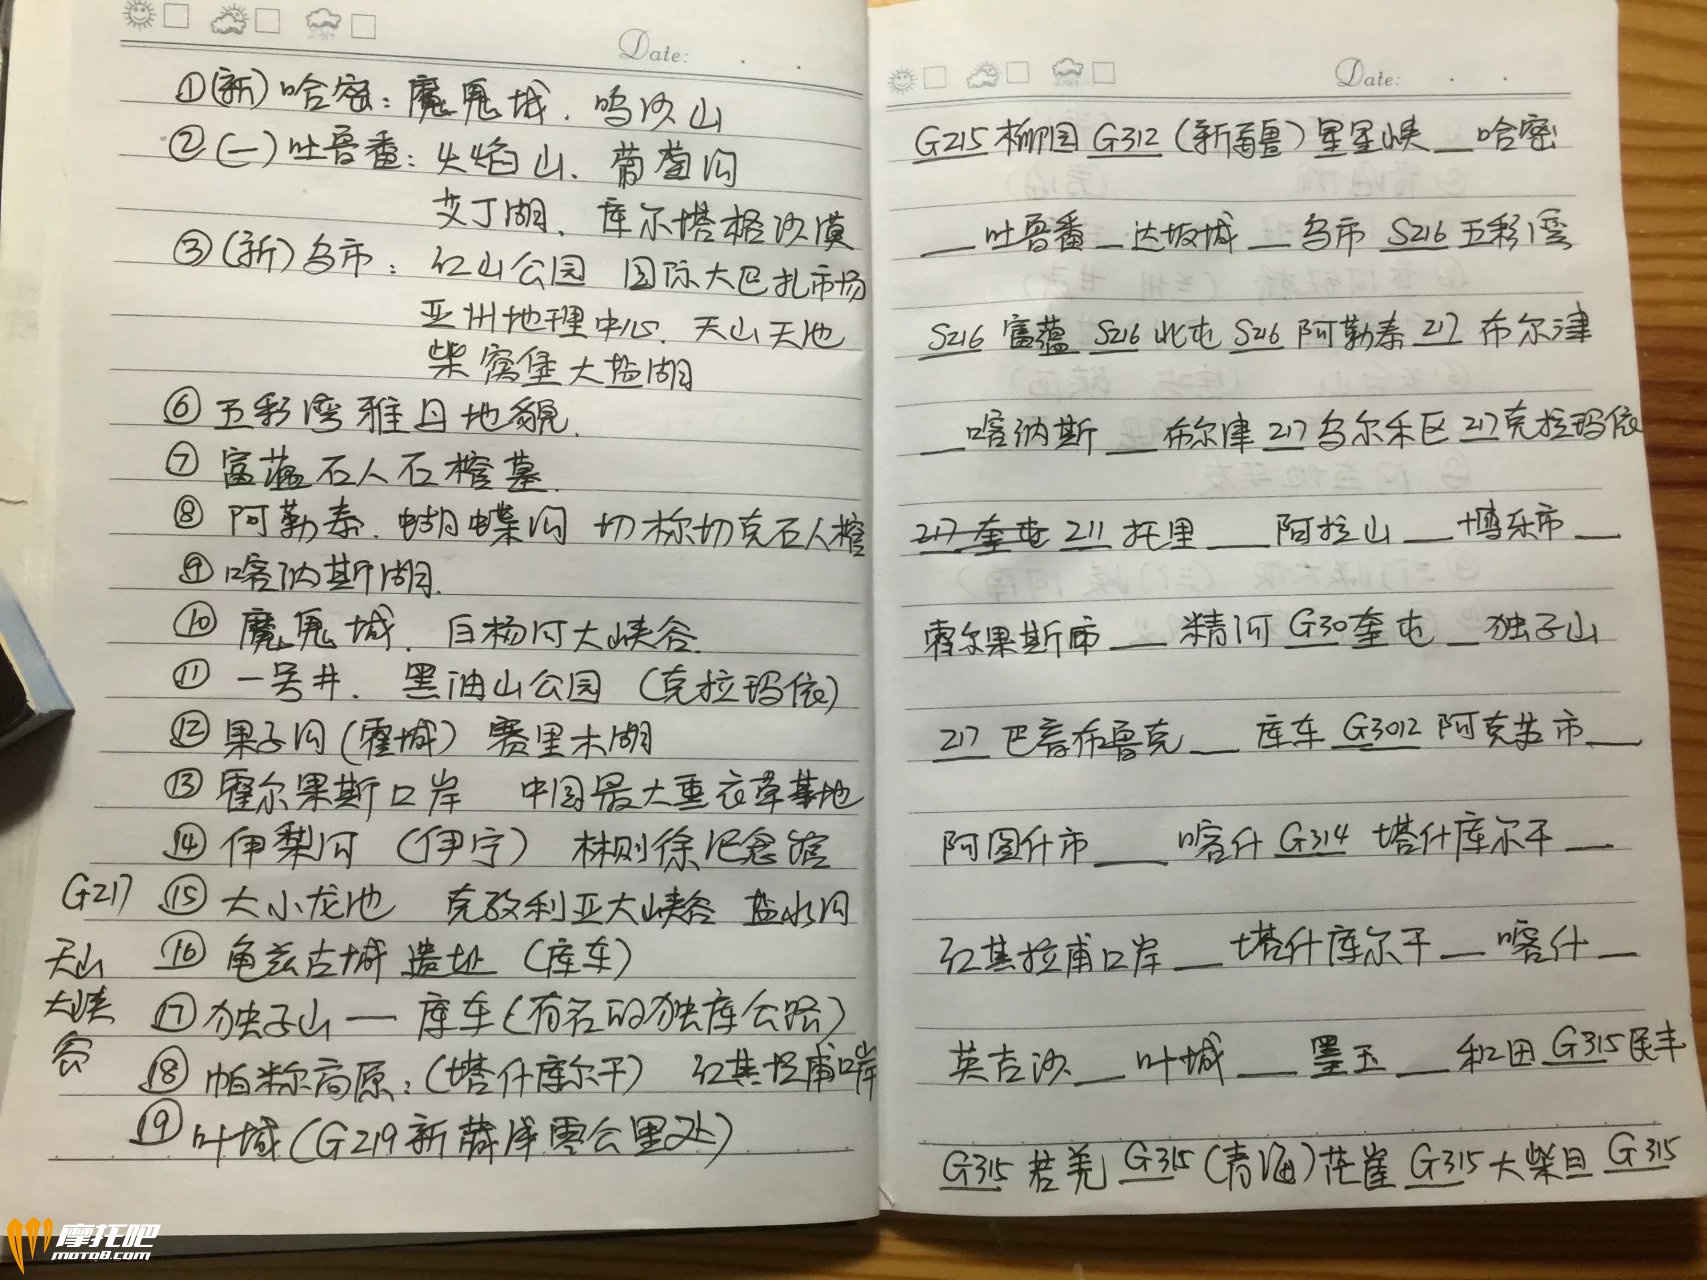 Date:
①(新)哈密：魔鬼城．鸣沙山
②(一)吐鲁番：火焰山．葡萄沟
艾丁湖．库尔塔格沙漠
③(新)乌市：红山公园 国际大巴扎市场
亚洲地理中心．天山天池
柴窝堡大盐湖
⑥五彩湾雅丹地貌．
⑦富蕴石人石棺墓．
⑧阿勒泰．蝴蝶沟 切称切克石人棺
⑨喀纳斯湖．
⑩魔鬼城．白杨河大峡谷．
⑪一号井．黑油山公园（克拉玛依）
⑫果子沟(霍城) 赛里木湖
⑬霍尔果斯口岸 中国最大熏衣草基地
⑭伊犁河（伊宁） 林则徐纪念馆
G217 ⑮大小龙池 克孜利亚大峡谷 盐水沟
天山 ⑯龟兹古城遗址（库车）
大峡 ⑰独子山—库车(有名的独库公路)
谷 ⑱帕米尔高原：(塔什库尔干) 红其拉甫口岸
⑲叶城(G219新藏线零公里处)
Date:
G215 柳园 G312（新疆）星星峡__哈密
__吐鲁番__达坂城__乌市 S216 五彩湾
S216 富蕴 S216 北屯 S216 阿勒泰 217 布尔津
__喀纳斯__布尔津 217 乌尔禾区 217 克拉玛依
217 奎屯 211 托里__阿拉山__博乐市__
霍尔果斯市__精河 G30 奎屯__独子山
217 巴音布鲁克__库车 G3012 阿克苏市__
阿图什市__喀什 G314 塔什库尔干__
红其拉甫口岸__塔什库尔干__喀什__
英吉沙__叶城__墨玉__和田 G315 民丰
G315 若羌 G315（青海）茫崖 G315 大柴旦 G315
摩托吧
MOTO8.com